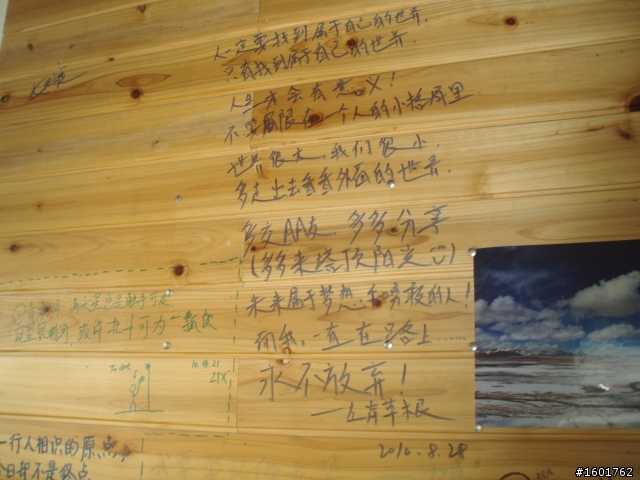 人一定要找到属于自己的世界.
只有找到属于自己的世界.
人生才会有意义!
不要局限在一个人的小格局里
世界很大,我们很小.
多走出去看看外面的世界.
多交AA友 多多分享
(多来塔顶阳光)
未来属于梦想和勇敢的人!
而我,一直在路上......
永不放弃!
2010.8.28
或许 可为一
10.08.21
LTX
一行人相识的原点,
今日却不是终点
#1601762